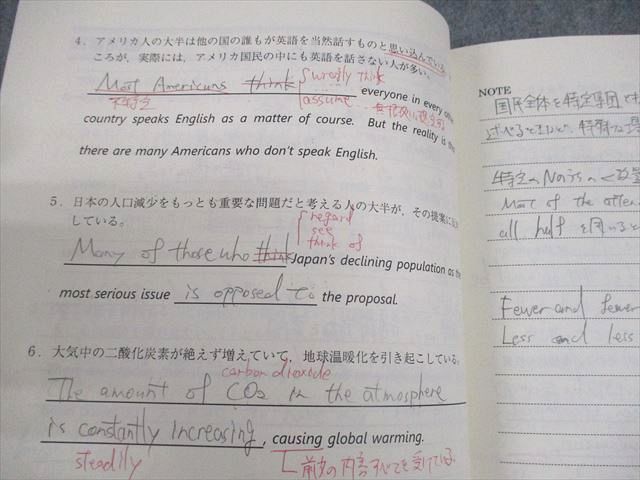 4．アメリカ人の大半は他の国の誰もが英語を当然話すものと思い込んでいる。
ころが，実際には，アメリカ国民の中にも英語を話さない人が多い．
Most Americans think wrongly think
everyone in every other
不特定
assume
country speaks English as a matter of course. But the reality is the
there are many Americans who don't speak English.
5．日本の人口減少をもっとも重要な問題だと考える人の大半が，その提案に
している。
regard
see
think of
Many of those who think Japan's declining population as the
most serious issue is opposed to the proposal.
6．大気中の二酸化炭素が絶えず増えていて，地球温暖化を引き起こしている。
carbon dioxide
The amount of CO2 in the atmosphere
is constantly increasing, causing global warming.
steadily
前文の内容すべてを受けている
NOTE
国民全体を特定集団
述べるときは
特定のNounsの
Most of the
all half を用いると
Fewer and fewer
Less and less